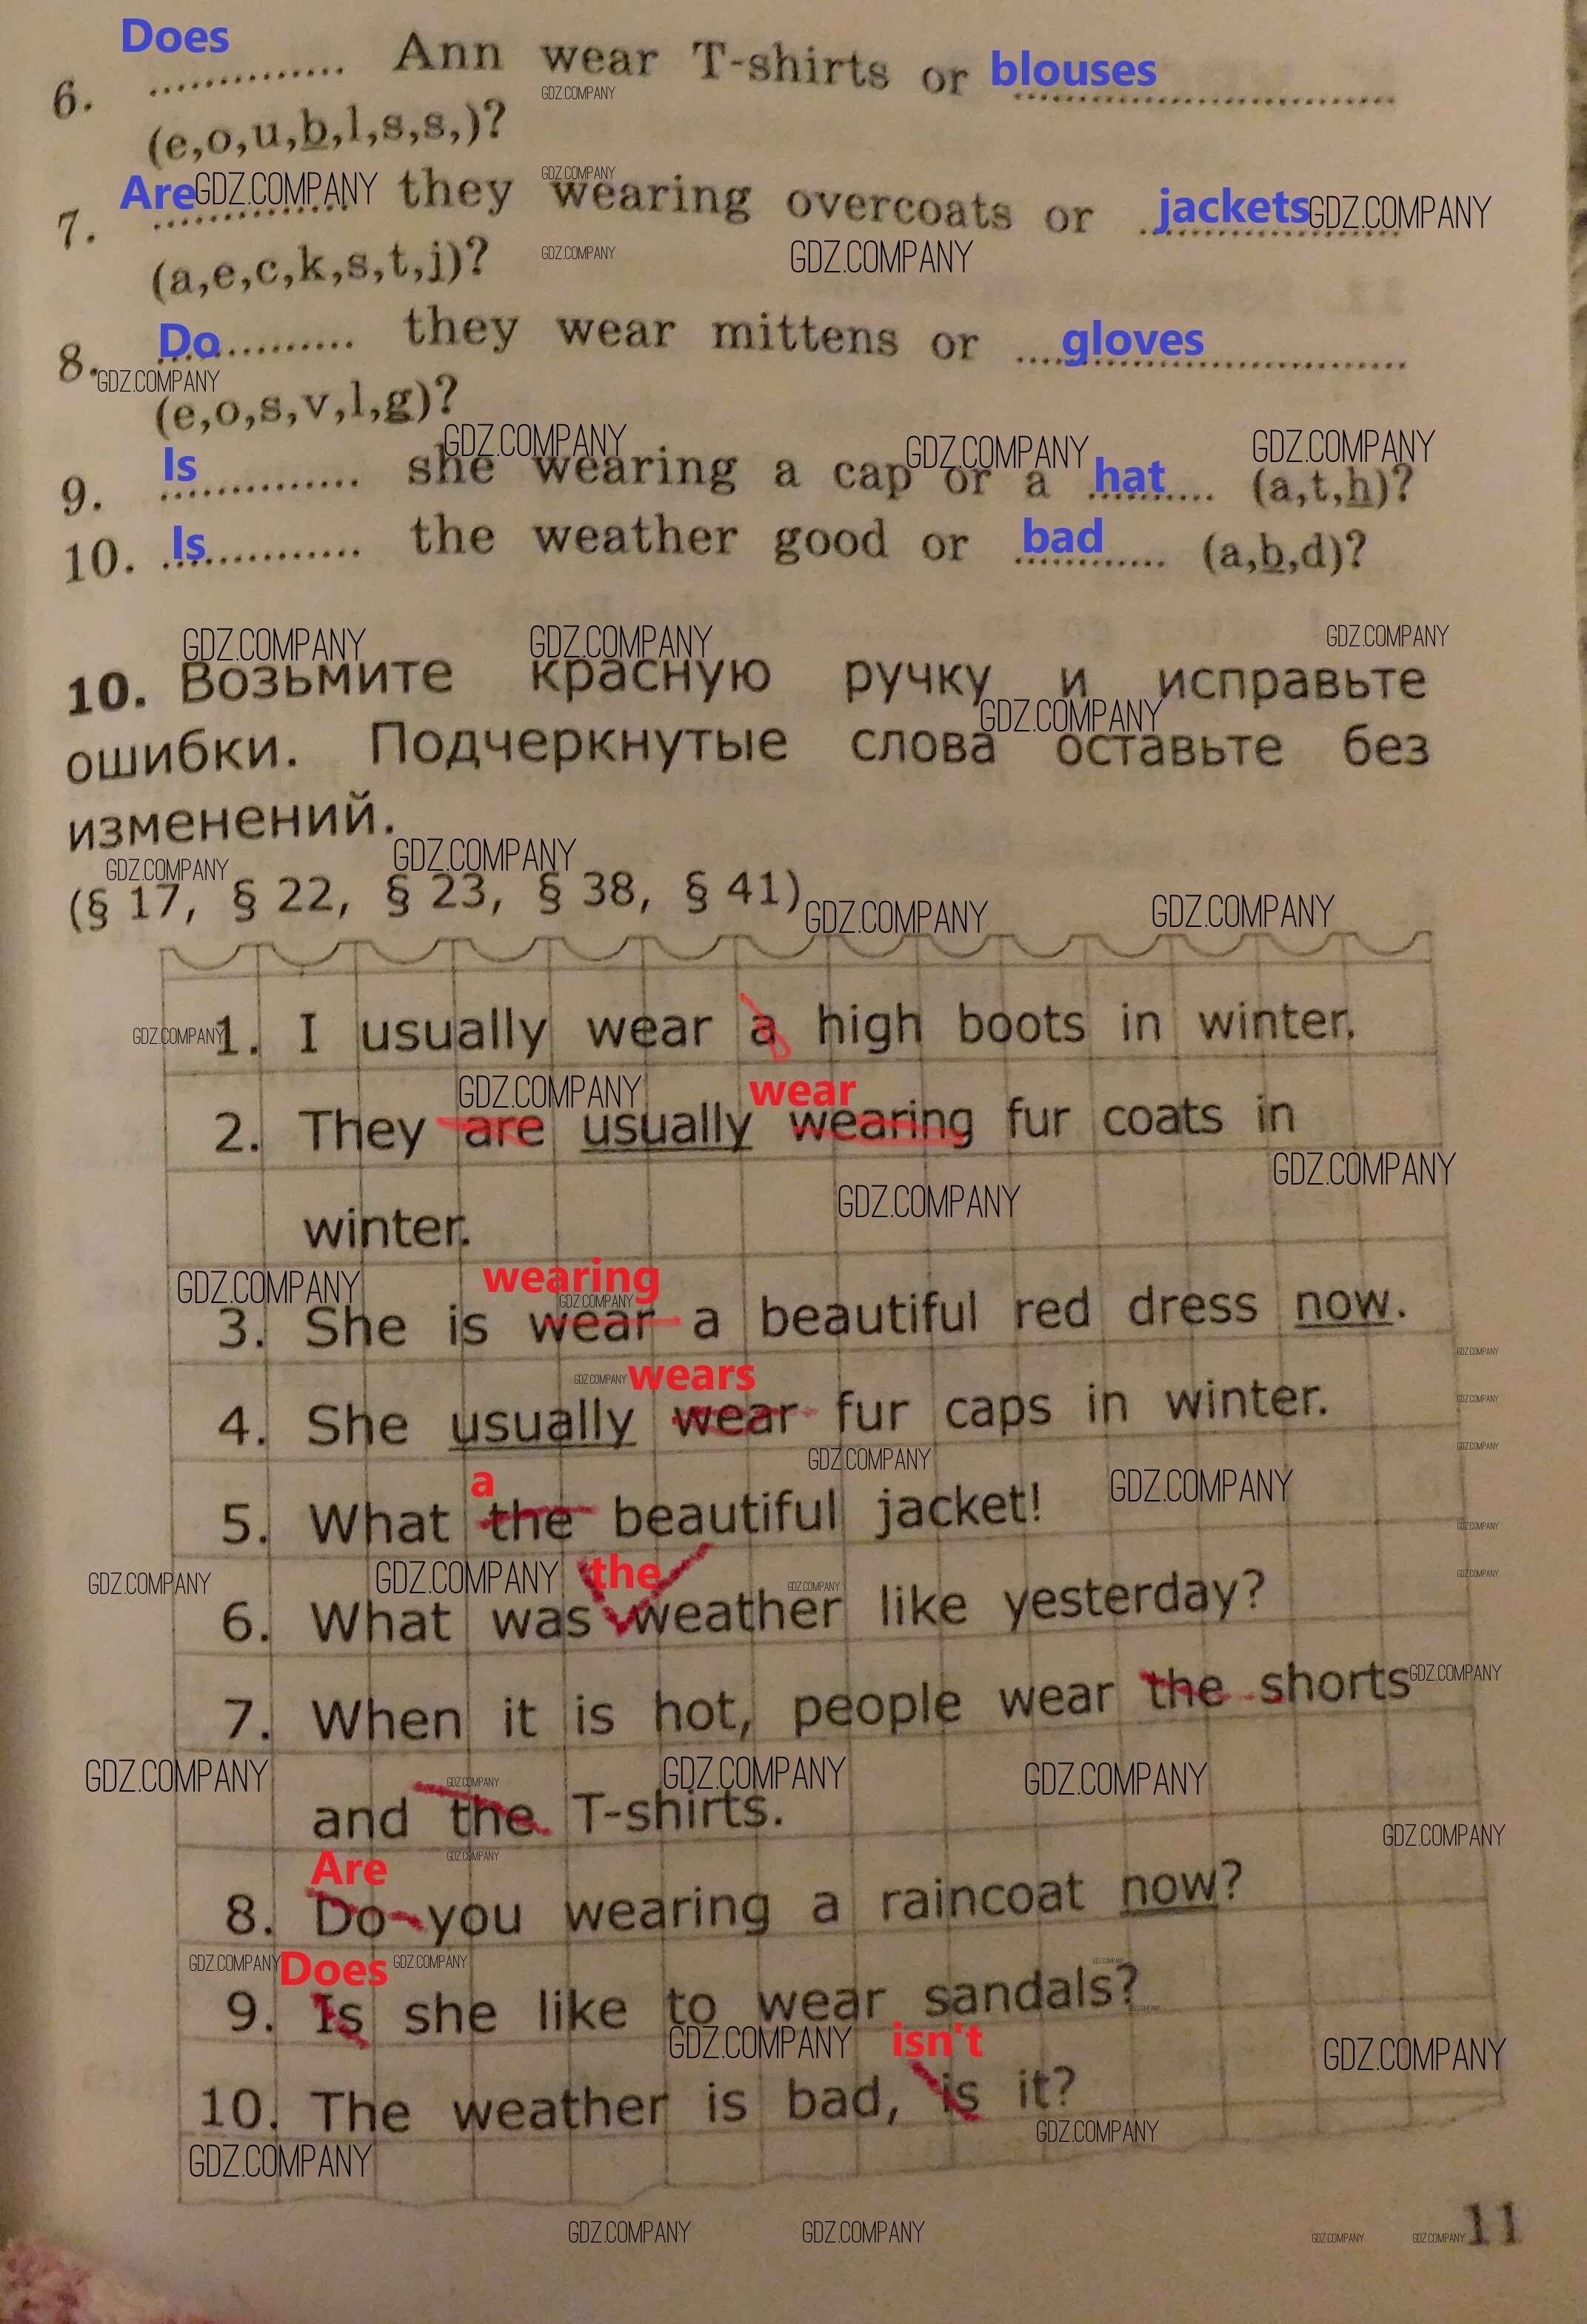 Does
6. ............. Ann wear T-shirts or blouses
(e,o,u,b,l,s,s,)?
7. Are they wearing overcoats or jackets
(a,e,c,k,s,t,j)?
8. Do............ they wear mittens or ....gloves
(e,o,s,v,l,g)?
9. Is she wearing a cap or a hat (a,t,h)?
10. Is the weather good or bad (a,b,d)?
10. Возьмите красную ручку и исправьте
ошибки. Подчеркнутые слова оставьте без
изменений.
(§ 17, § 22, § 23, § 38, § 41)
1. I usually wear a high boots in winter.
wear
2. They are usually wearing fur coats in
winter.
wearing
3. She is wear a beautiful red dress now.
wears
4. She usually wear fur caps in winter.
a
5. What the beautiful jacket!
the
6. What was weather like yesterday?
7. When it is hot, people wear the shorts
and the T-shirts.
Are
8. Do you wearing a raincoat now?
Does
9. Is she like to wear sandals?
isn't
10. The weather is bad, is it?
11
GDZ.COMPANY